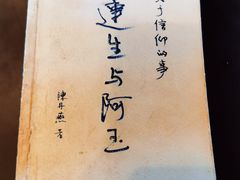 于信仰的事
生与阿玉
陳丹燕 著